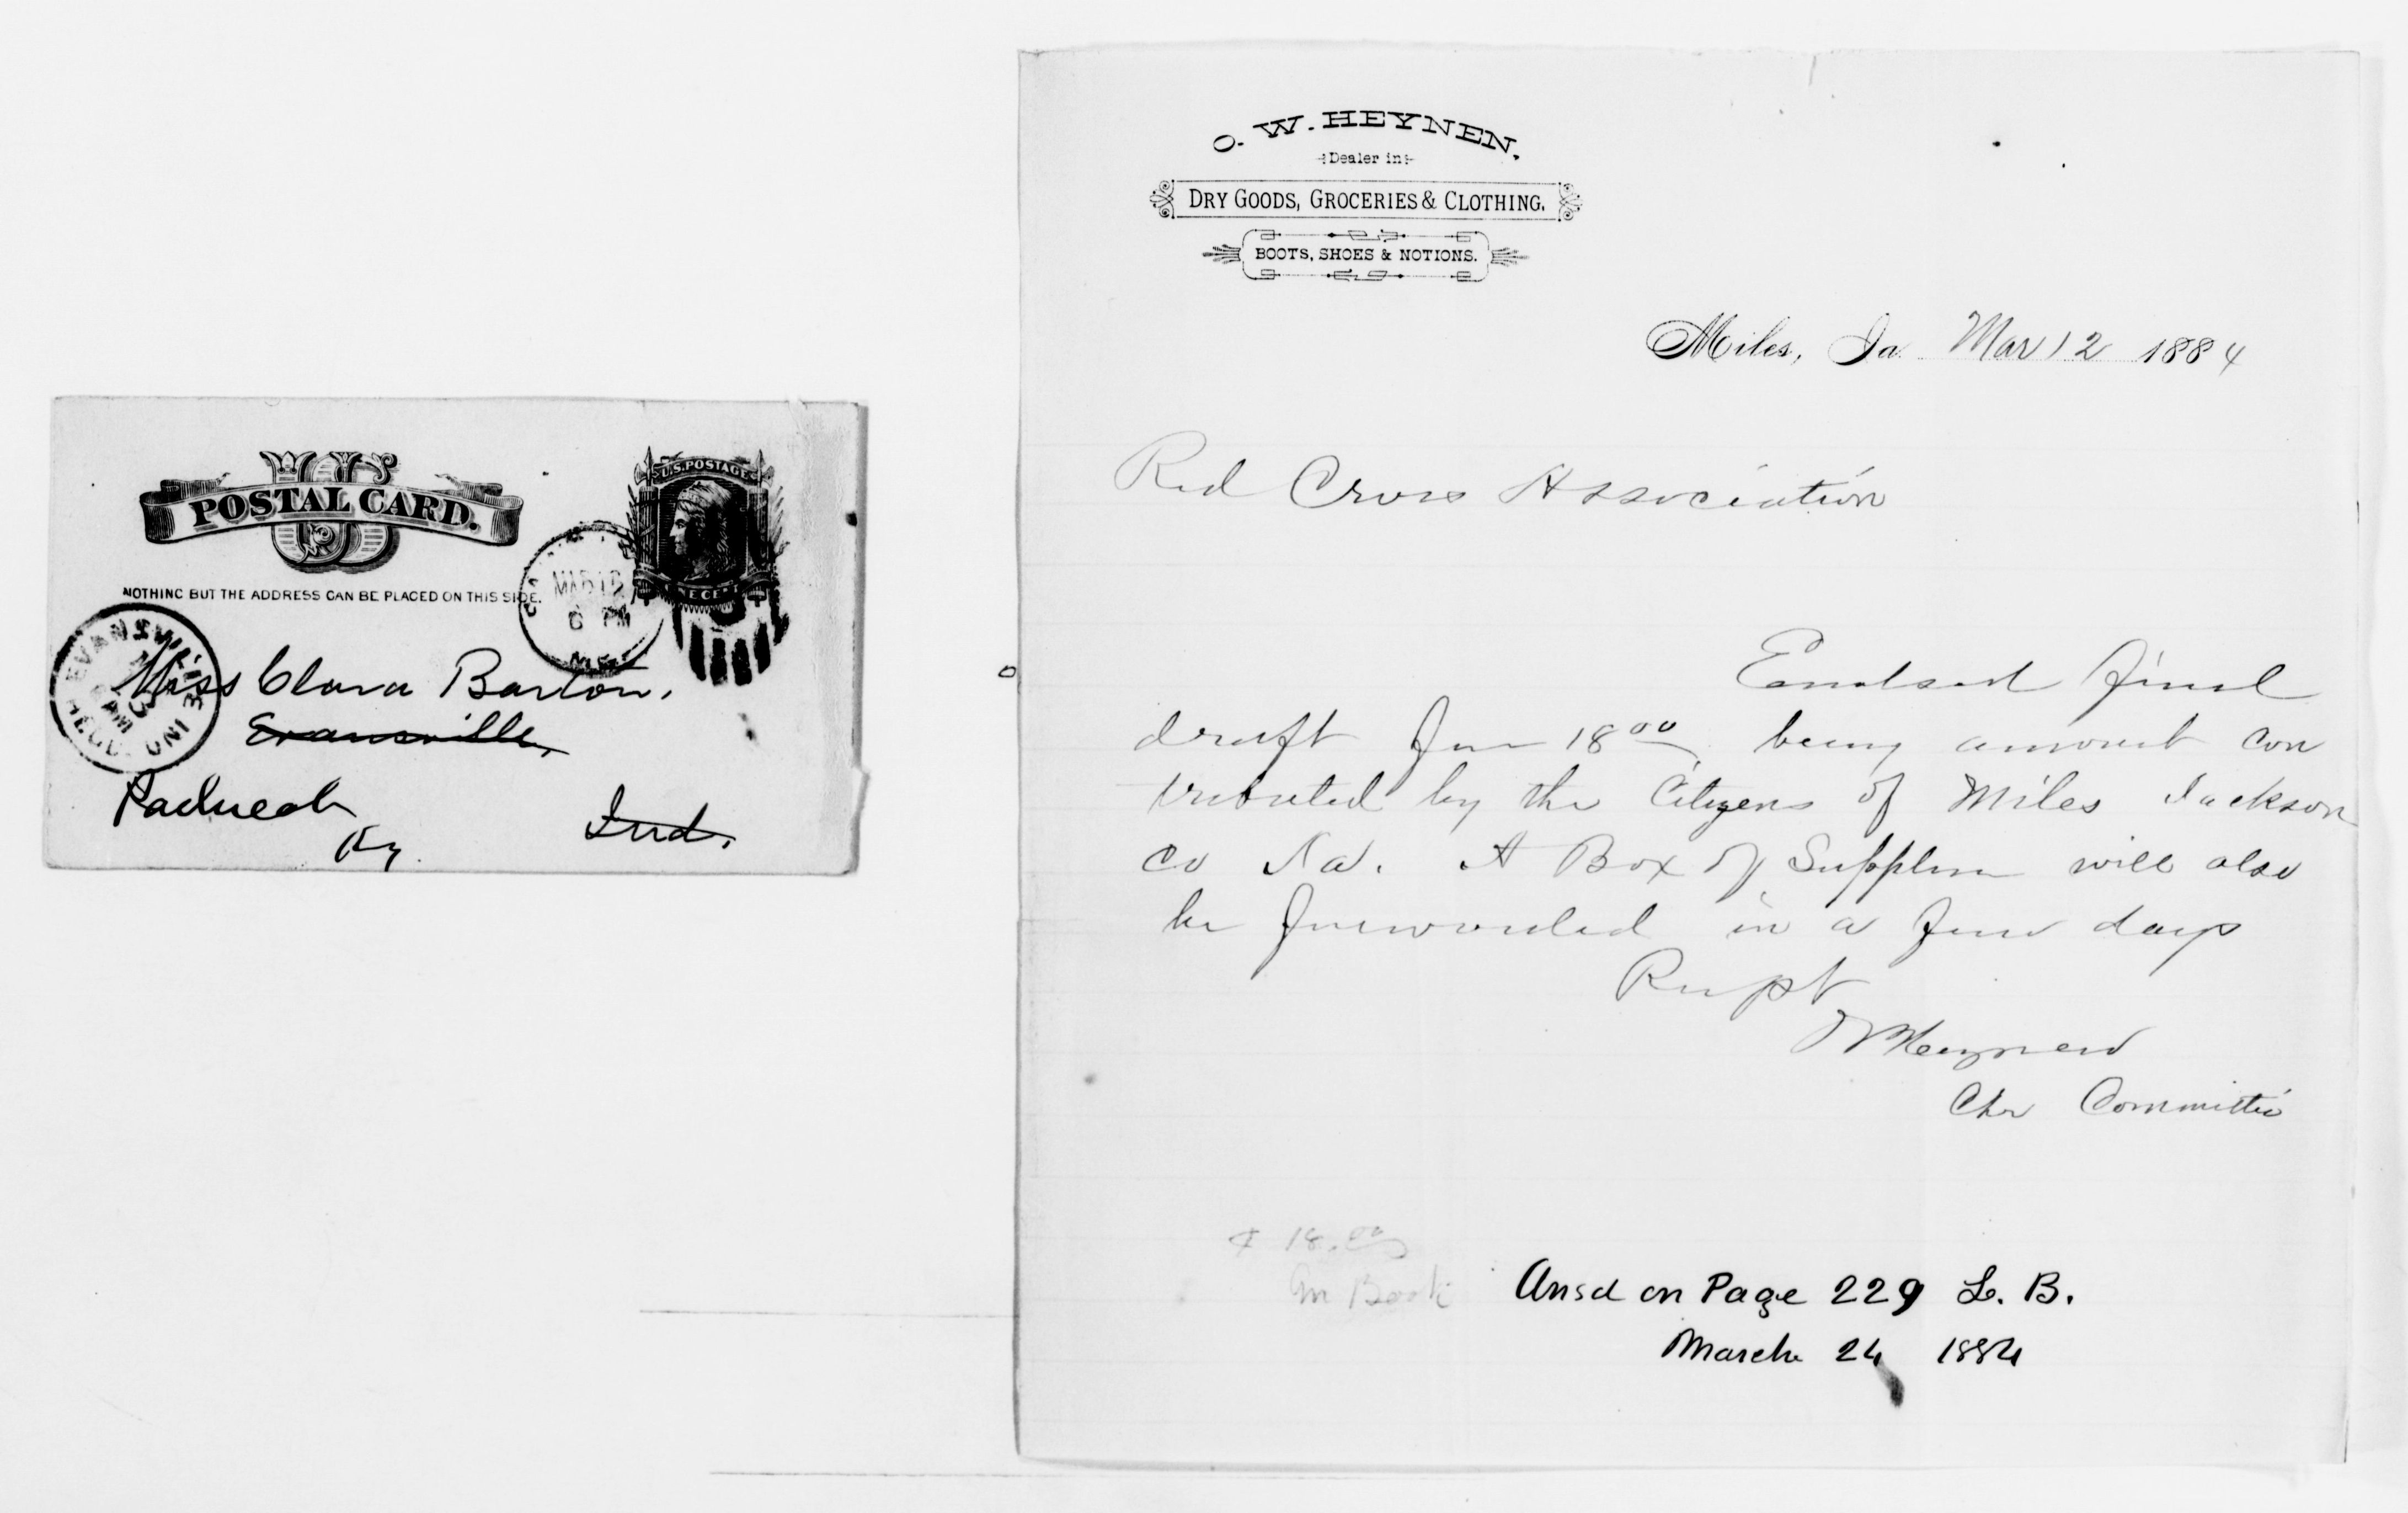 U S
POSTAL CARD.
U.S. POSTAGE
ONE CENT
NOTHING BUT THE ADDRESS CAN BE PLACED ON THIS SIDE.
6 PM
EVANSVILLE IND
Miss Clara Barton,
Evansville,
Paducah
Ky.
Ind.
O. W. HEYNEN,
Dealer in
DRY GOODS, GROCERIES & CLOTHING.
BOOTS, SHOES & NOTIONS.
Miles, Ia. Mar 12 1884
Red Cross Association
Find
draft for 18 00 being amount con
tributed by the Citizens of Miles Jackson
co Ia. A Box of Supplies will also
be forwarded in a few days
Respt
O W Heynen
Chr Committee
$ 18.00
In Book
Ansd on Page 229 L. B.
March 24 1884